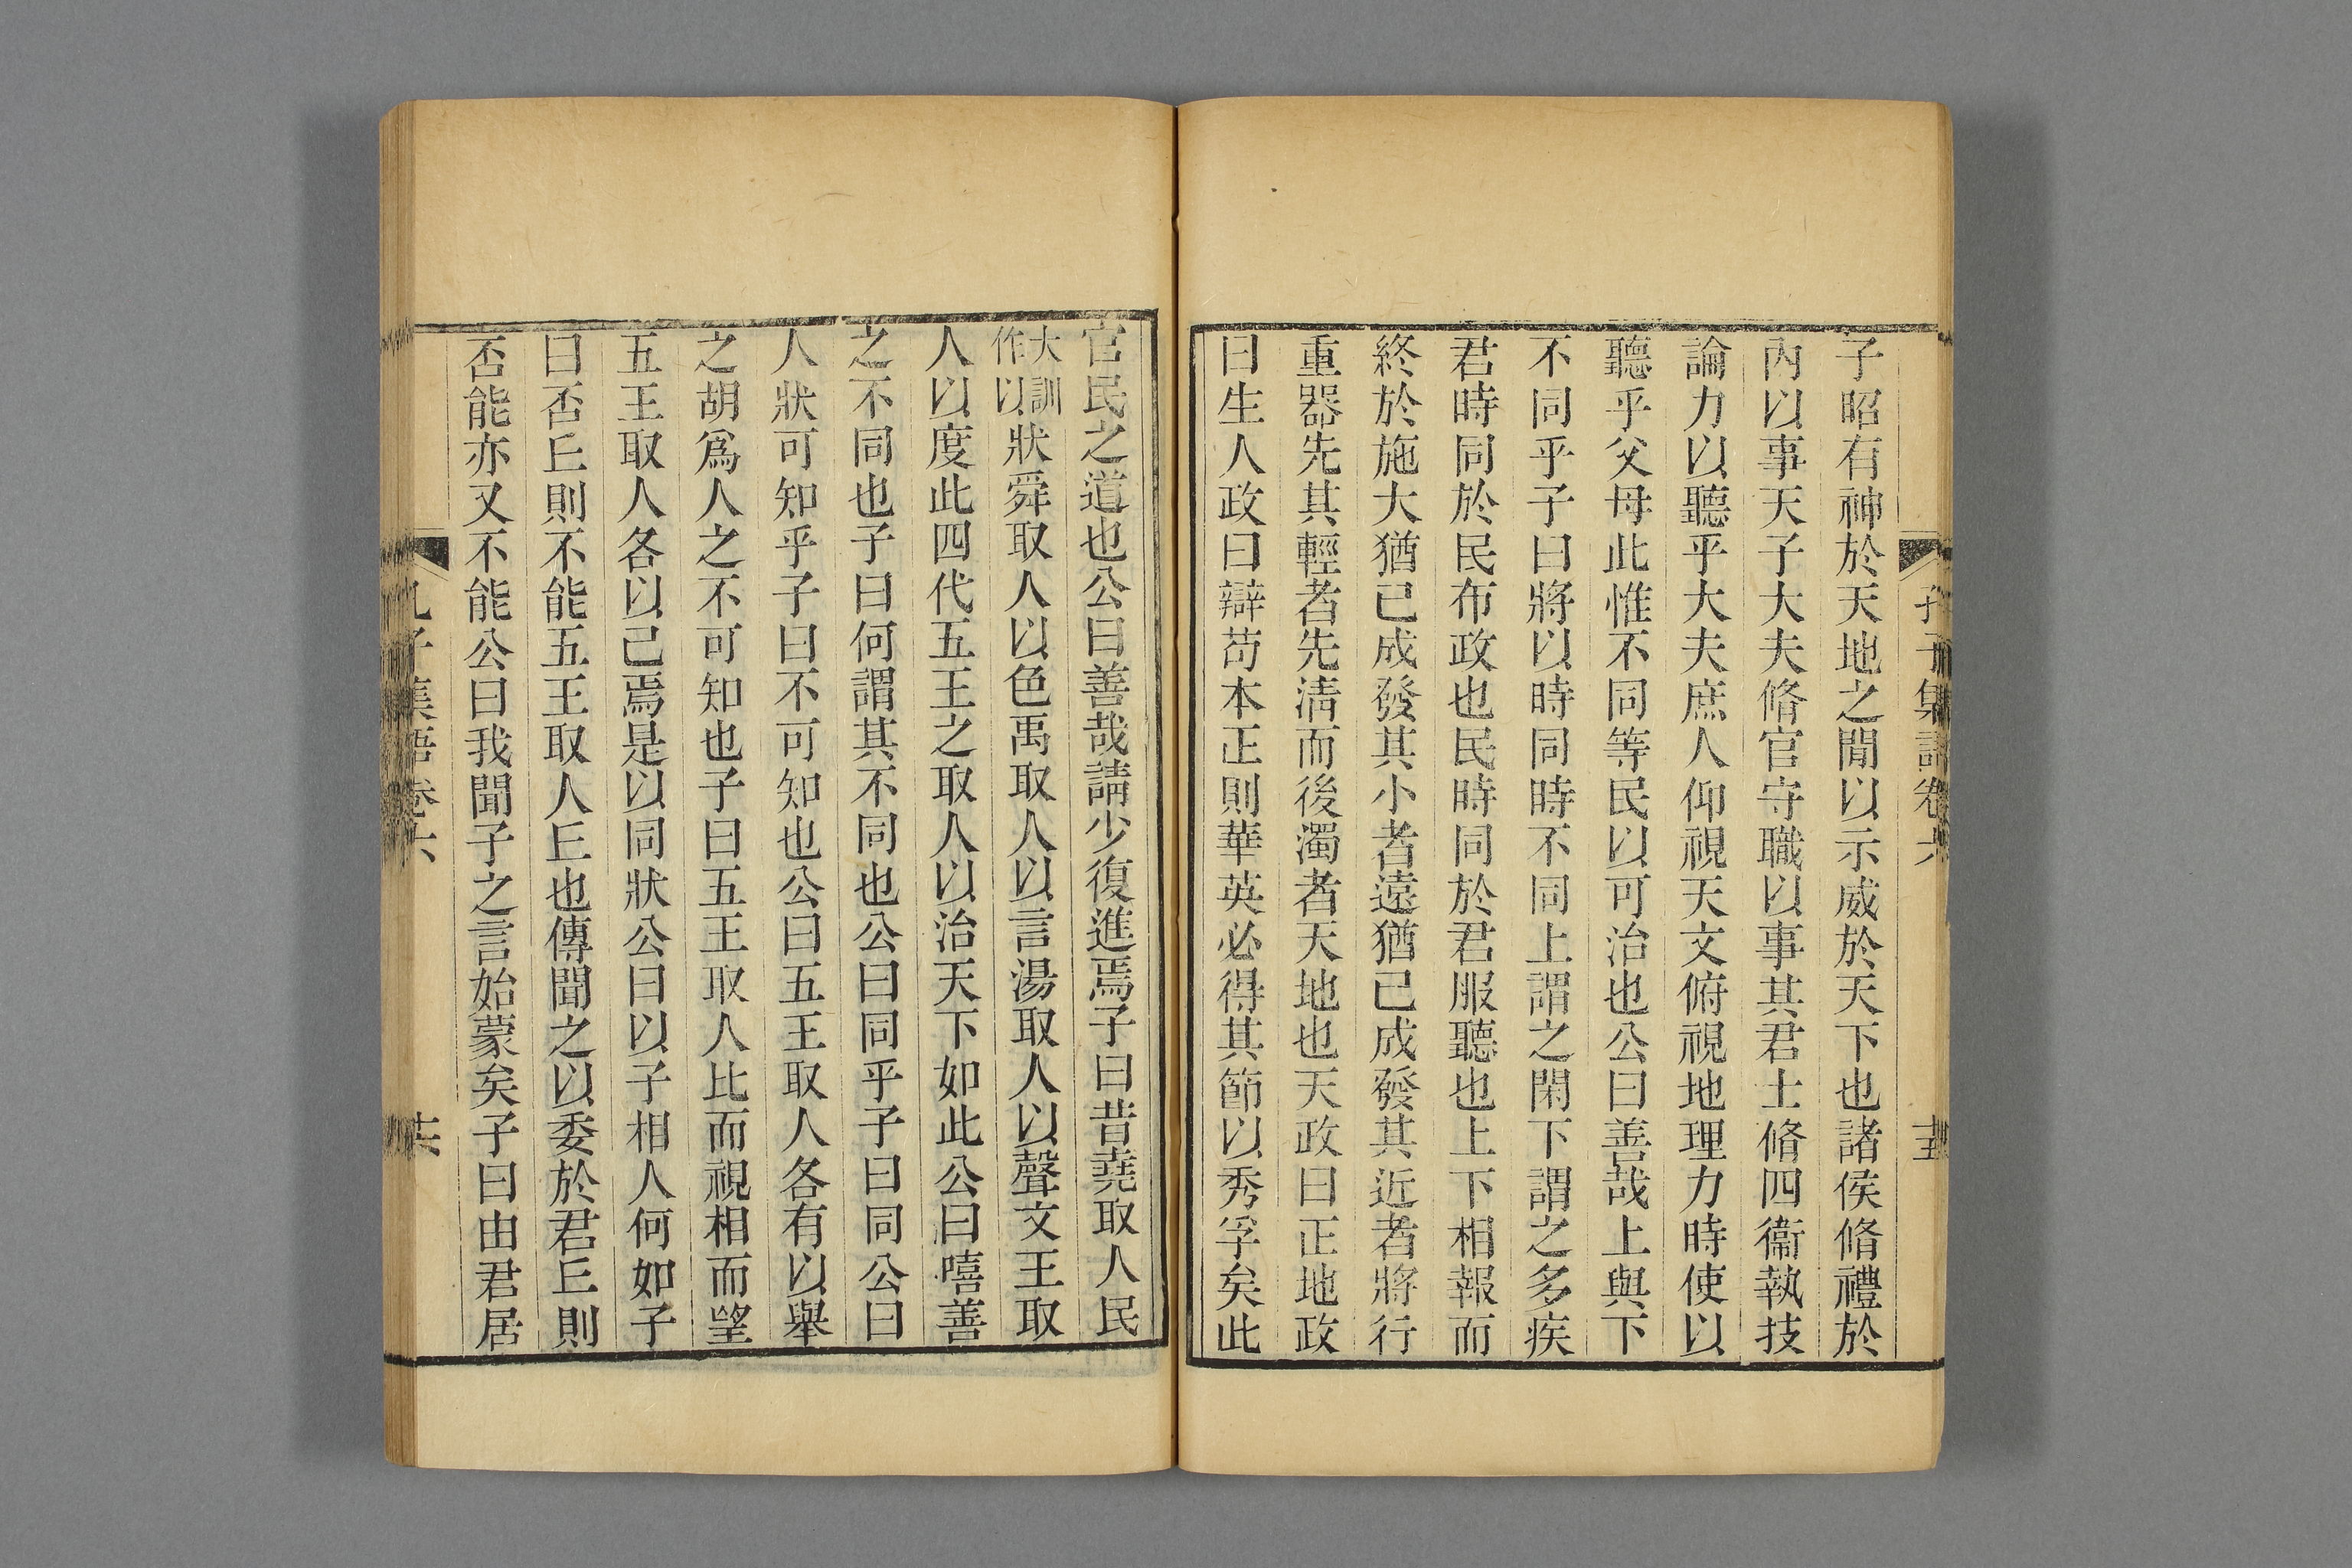 孔子集語卷六 十五
子昭有神於天地之閒以示威於天下也諸侯脩禮於
內以事天子大夫脩官守職以事其君士脩四衞執技
論力以聽乎大夫庶人仰視天文俯視地理力時使以
聽乎父母此惟不同等民以可治也公曰善哉上與下
不同乎子曰將以時同時不同上謂之閑下謂之多疾
君時同於民布政也民時同於君服聽也上下相報而
終於施大猶已成發其小者遠猶已成發其近者將行
重器先其輕者先淸而後濁者天地也天政曰正地政
曰生人政曰辯苟本正則華英必得其節以秀孚矣此
官民之道也公曰善哉請少復進焉子曰昔堯取人民
大訓
作以
狀舜取人以色禹取人以言湯取人以聲文王取
人以度此四代五王之取人以治天下如此公曰嘻善
之不同也子曰何謂其不同也公曰同乎子曰同公曰
人狀可知乎子曰不可知也公曰五王取人各有以舉
之胡爲人之不可知也子曰五王取人比而視相而望
五王取人各以己焉是以同狀公曰以子相人何如子
曰否丘則不能五王取人丘也傳聞之以委於君丘則
否能亦又不能公曰我聞子之言始蒙矣子曰由君居
孔子集語卷六 十六